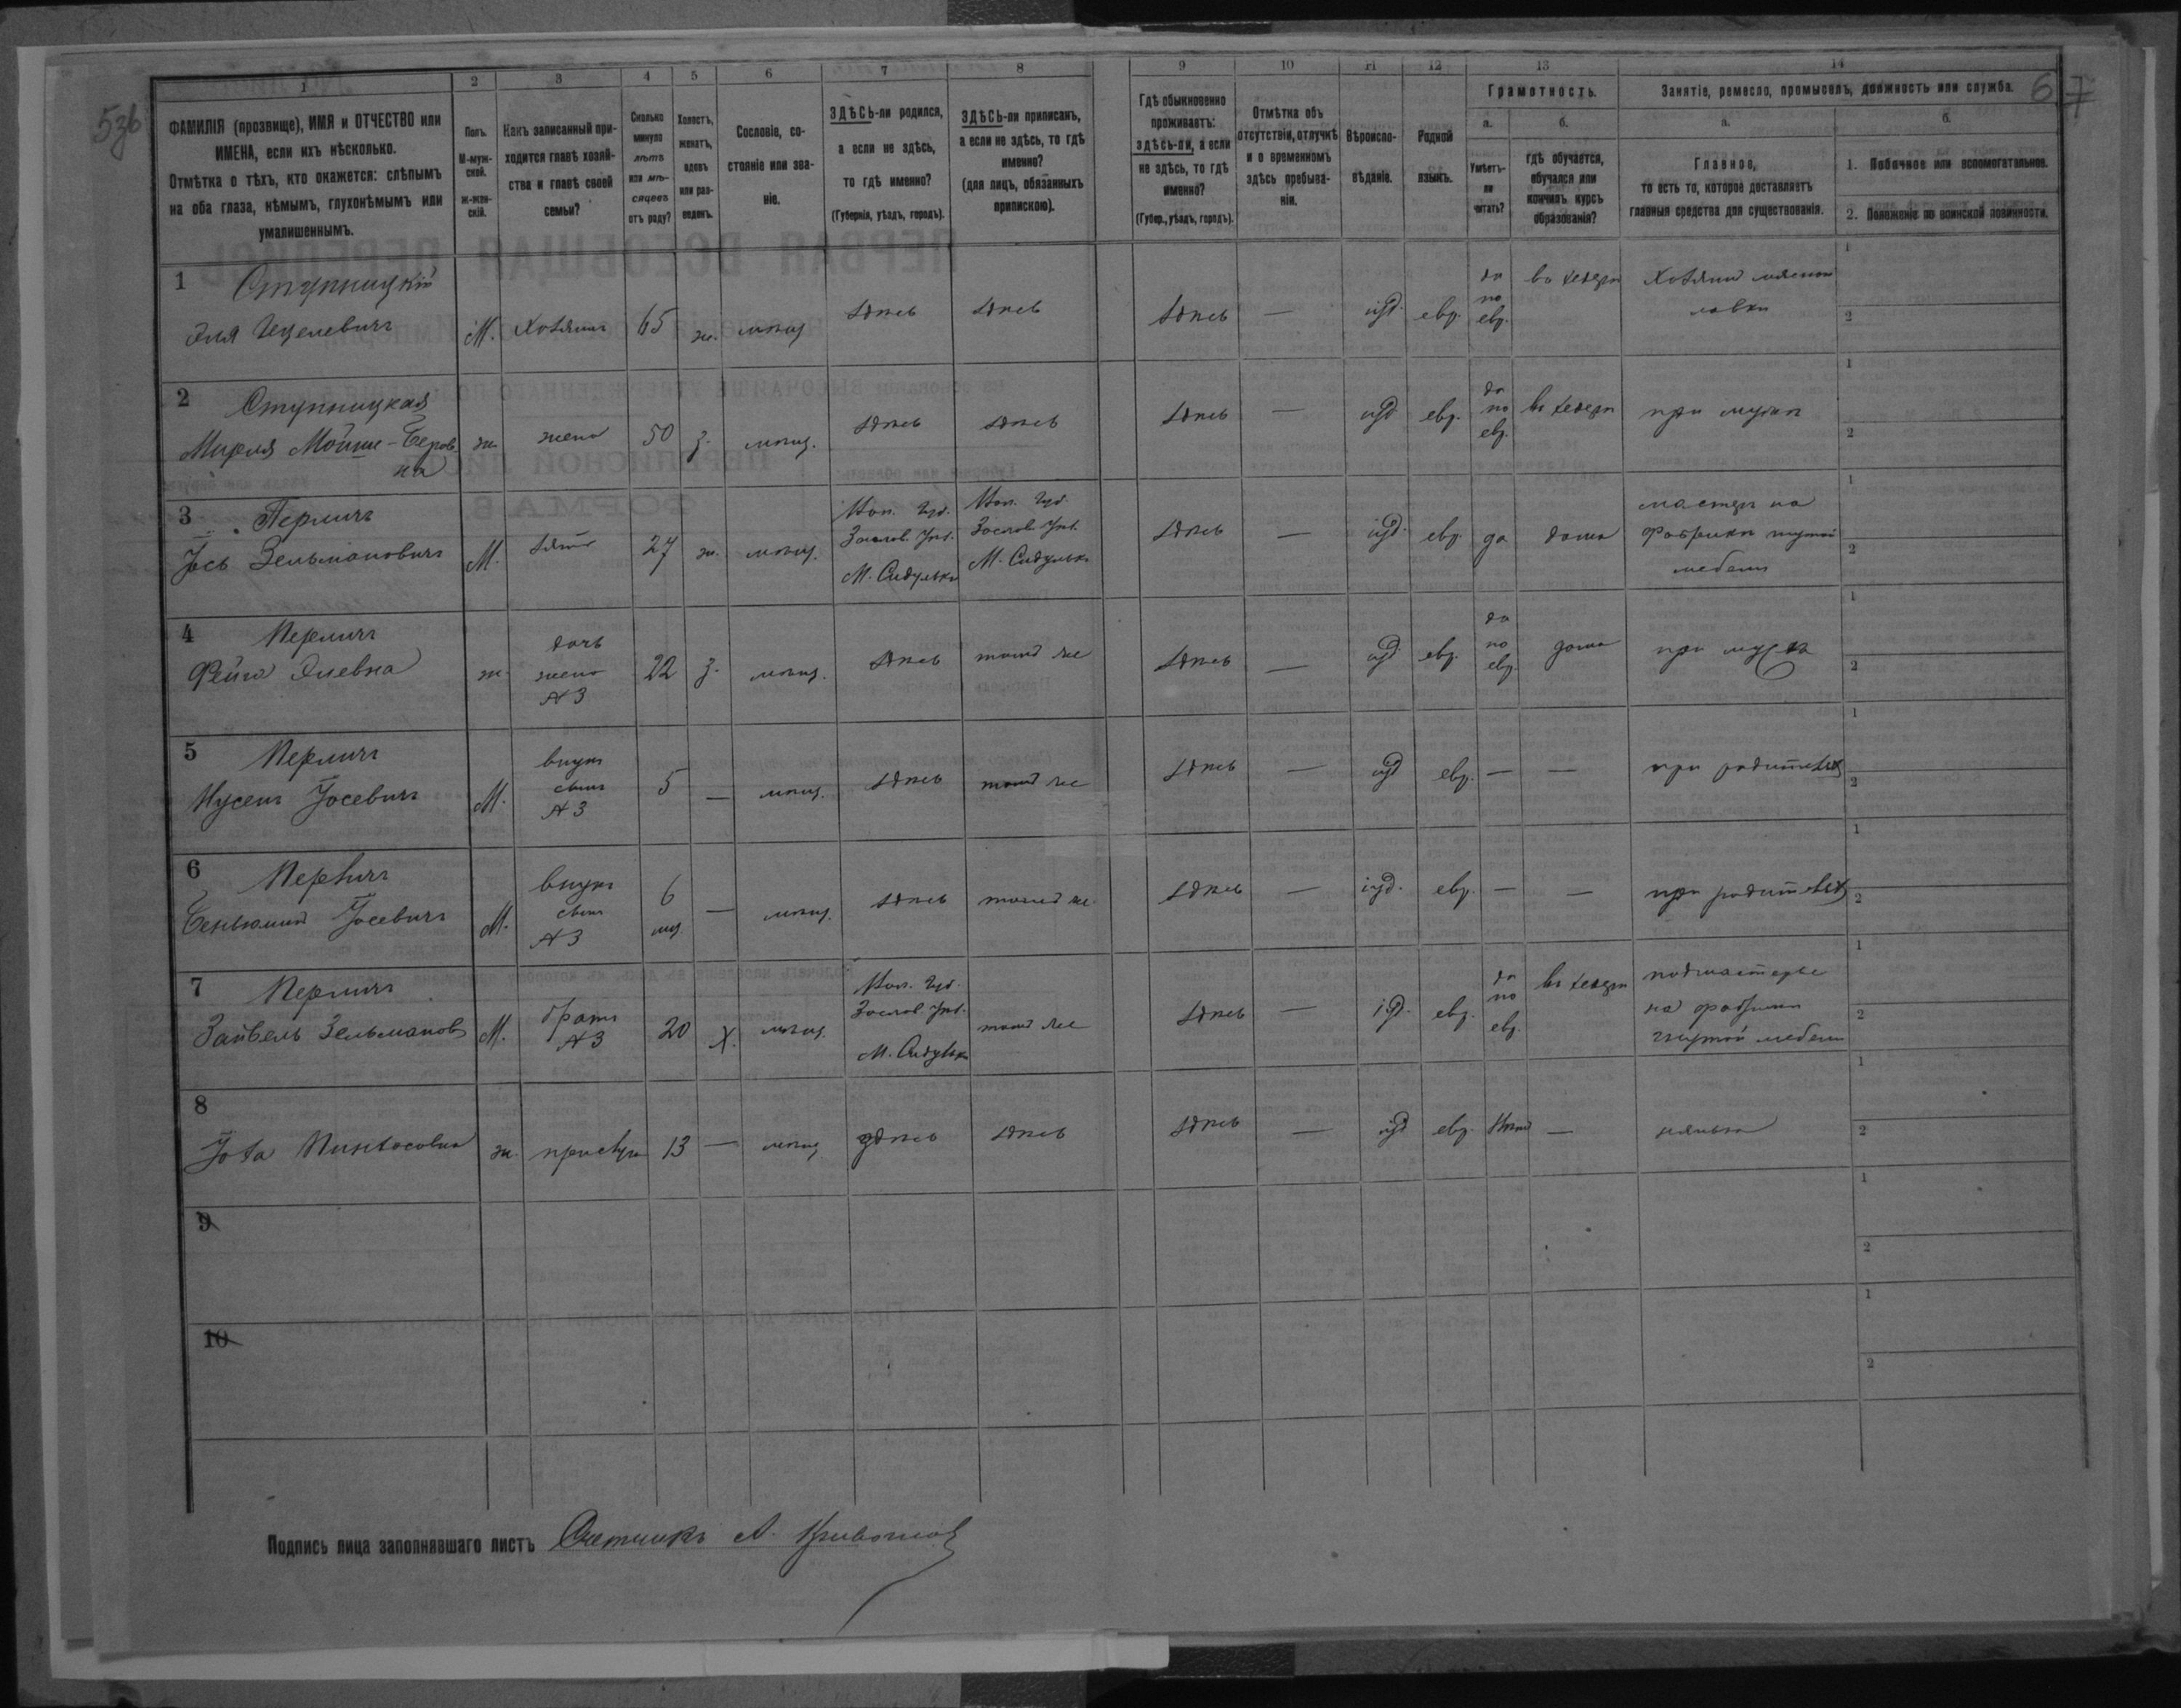 536
67
1 2 3 4 5 6 7 8 9 10 11 12 13 14
ФАМИЛІЯ (прозвище), ИМЯ и ОТЧЕСТВО или
ИМЕНА, если ихъ нѣсколько.
Отмѣтка о тѣхъ, кто окажется: слѣпымъ
на оба глаза, нѣмымъ, глухонѣмымъ или
умалишеннымъ.
Полъ.
М-муж-
ской.
ж-жен-
скій.
Какъ записанный при-
ходится главѣ хозяй-
ства и главѣ своей
семьи?
Сколько
минуло
лѣтъ
или мѣ-
сяцевъ
отъ роду?
Холостъ,
женатъ,
вдовъ
или раз-
веденъ.
Сословіе, со-
стояніе или зва-
ніе.
ЗДѢСЬ-ли родился,
а если не здѣсь,
то гдѣ именно?
(Губернія, уѣздъ, городъ).
ЗДѢСЬ-ли приписанъ,
а если не здѣсь, то гдѣ
именно?
(для лицъ, обязанныхъ
припискою).
Гдѣ обыкновенно
проживаетъ:
здѣсь-ли, а если
не здѣсь, то гдѣ
именно?
(Губер., уѣздъ, городъ).
Отмѣтка объ
отсутствіи, отлучкѣ
и о временномъ
здѣсь пребыва-
ніи.
Вѣроиспо-
вѣданіе.
Родной
языкъ.
Грамотность.
а.
Умѣетъ-
ли
читать?
б.
гдѣ обучается,
обучался или
кончилъ курсъ
образованія?
Занятіе, ремесло, промыселъ, должность или служба.
а.
Главное,
то есть то, которое доставляетъ
главныя средства для существованія.
б.
1. Побочное или вспомогательное.
2. Положеніе по воинской повинности.
1 Ступницкій
Эля Гецелевичъ М. хозяинъ 65 ж. мѣщ. здѣсь здѣсь здѣсь — іуд. евр. да по евр. въ хедерѣ Хозяинъ мясной
лавки
2 Ступницкая
Мирля Мойше-Беров
на ж. жена 50 з. мѣщ. здѣсь здѣсь здѣсь — іуд. евр. да по евр. въ хедерѣ при мужѣ
3 Перличъ
Іось Зельмановичъ М. зять 27 ж. мѣщ. Вол. Губ.
Заслав. Уѣз.
М. Судулька
Вол. Губ.
Заслав. Уѣз.
М. Судулька
здѣсь — іуд. евр. да дома мастеръ на
фабрикѣ гнутой
мебели
4 Перличъ
Фейга Элевна ж. дочь
жена
№ 3 22 з. мѣщ. здѣсь тамъ же здѣсь — іуд. евр. да по евр. дома при мужѣ
5 Перличъ
Нусенъ Іосевичъ М. внукъ
сынъ
№ 3 5 — мѣщ. здѣсь тамъ же здѣсь — іуд. евр. — — при родителяхъ
6 Перличъ
Беньюминъ Іосевичъ М. внукъ
сынъ
№ 3 6
мѣс. — мѣщ. здѣсь тамъ же здѣсь — іуд. евр. — — при родителяхъ
7 Перличъ
Зайвель Зельманов М. братъ
№ 3 20 х. мѣщ. Вол. Губ.
Заслав. Уѣз.
М. Судулька
тамъ же здѣсь — іуд. евр. да по евр. въ хедерѣ подмастерье
на фабрикѣ
гнутой мебели
8
Пинхасовна ж. прислуга 13 — мѣщ. здѣсь здѣсь здѣсь — іуд. евр. нѣтъ — нянька
9
10
Подпись лица заполнявшаго листъ Счетчикъ А.